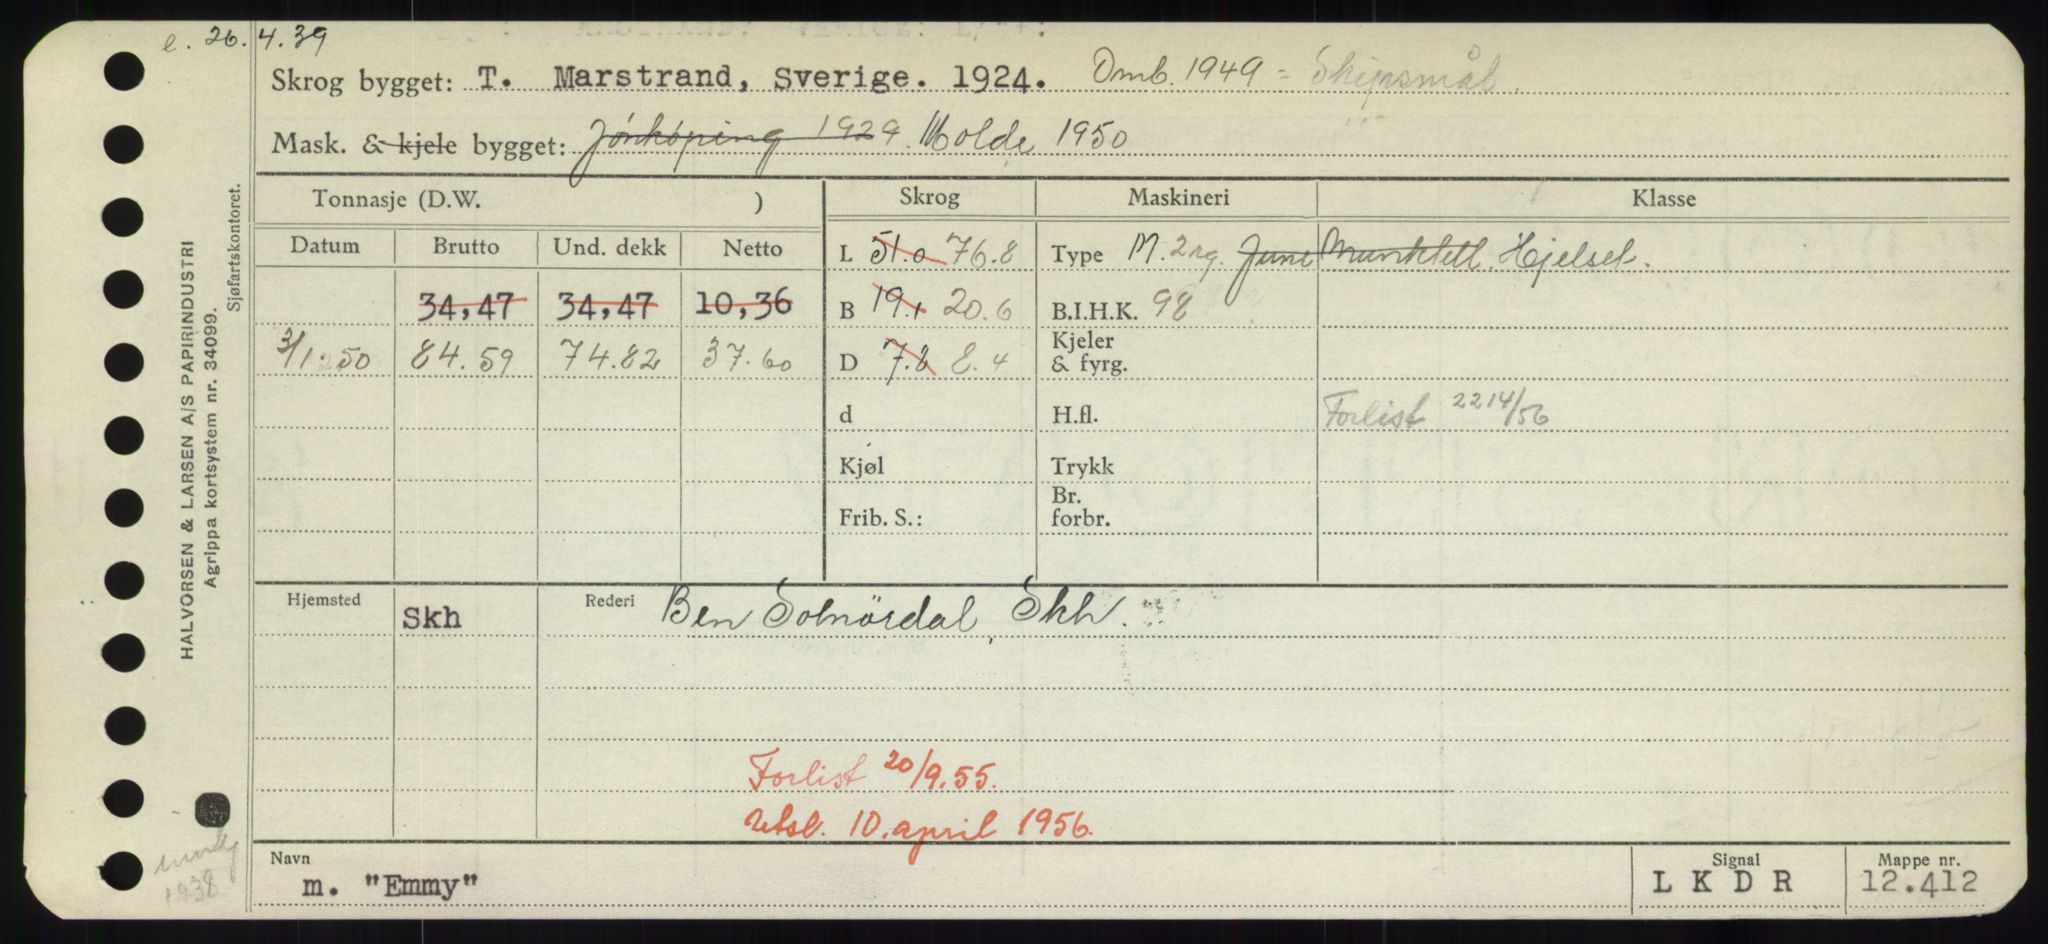 e. 26.4.39
Skrog bygget: T. Marstrand, Sverige. 1924. Omb. 1949 = Skipsmål.
Mask. & kjele bygget: Jönköping 1929. Molde 1950
Tonnasje (D.W. ) Skrog Maskineri Klasse
Datum Brutto Und. dekk Netto L 51.0 76.8 Type M. 2 syl. June Munktell. Hjelset.
34,47 34,47 10,36 B 19.1 20.6 B.I.H.K. 98
3/1 50 84.59 74.82 37.60 D 7.2 8.4 Kjeler & fyrg.
d H.fl. Forlist 2214/56
Kjøl Trykk
Frib. S.: Br. forbr.
Hjemsted Skh Rederi Ben Solnördal, Skh.
Forlist 20/9.55.
Utsl. 10. april 1956.
Navn m. "Emmy" Signal LKDR Mappe nr. 12.412
HALVORSEN & LARSEN A/S PAPIRINDUSTRI
Agrippa kortsystem nr. 34099.
Sjøfartskontoret.
1938